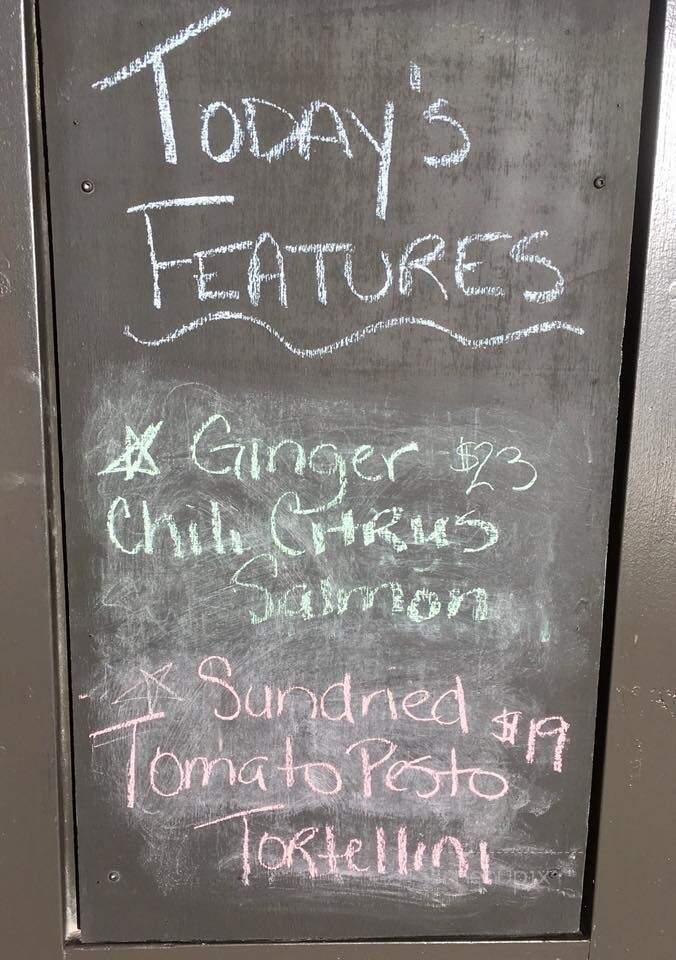 TODAY'S
FEATURES
Ginger $23
Chili CitRus
Salmon
Sundried $19
Tomato Pesto
TORtellini